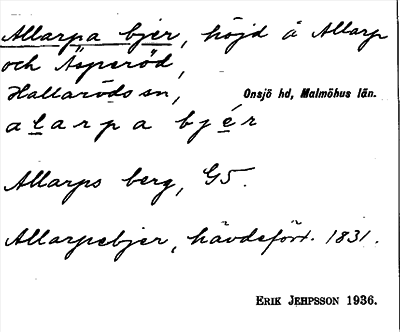 Allarpa bjer, höjd å Allarp
och Äsperöd,
Hallaröds sn, Onsjö hd, Malmöhus län.
a l a r p a b j é r
Allarps berg, G5.
Allarpebjer, hävdefört. 1831.
ERIK JEHPSSON 1936.